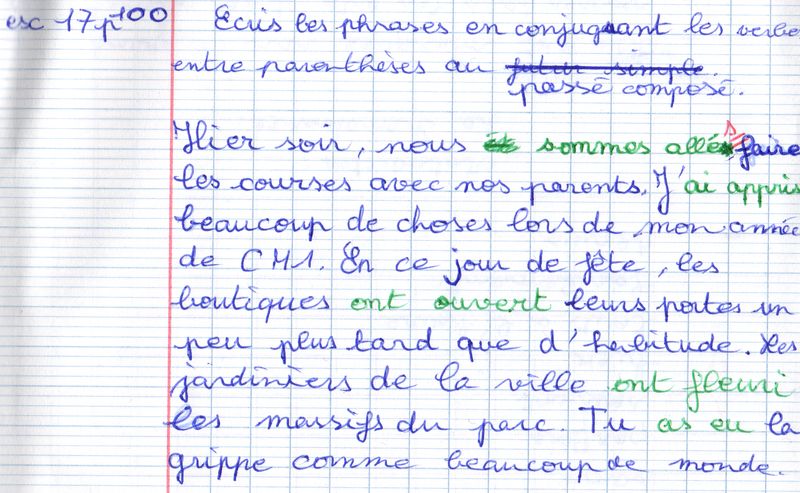 exc 17 p 100 Ecris les phrases en conjuguant les verbe
entre parenthèses au futur simple.
passé composé.
Hier soir, nous sommes allés faire
les courses avec nos parents. J'ai appris
beaucoup de choses lors de mon année
de CM1. En ce jour de fête, les
boutiques ont ouvert leurs portes un
peu plus tard que d'habitude. Les
jardiniers de la ville ont fleuri
les massifs du parc. Tu as eu la
grippe comme beaucoup de monde.